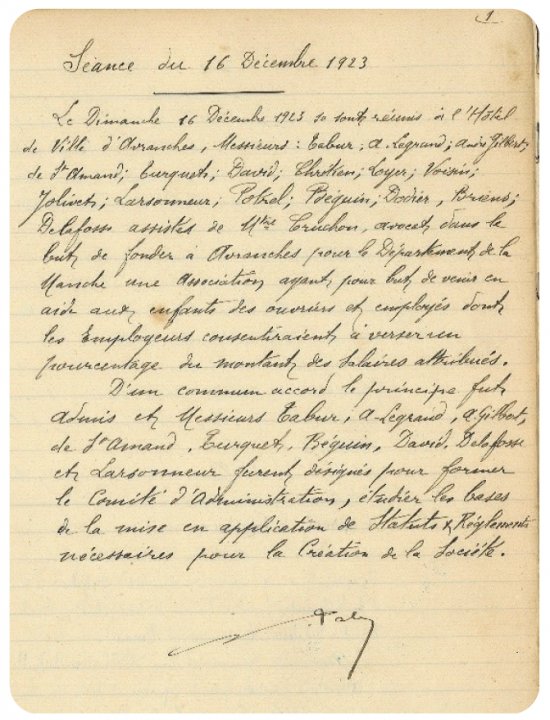 1
Séance du 16 Décembre 1923
Le Dimanche 16 Décembre 1923 se sont réunis à l'Hôtel
de Ville d'Avranches, Messieurs : Tabur ; A. Legrand ; Gilbert ;
de St Amand ; Turquet ; David ; Chrétien ; Loyer ; Voisin ;
Jolivet ; Larsonneur ; Potrel ; Béguin ; Dodier , Briens ;
Delafosse assistés de Mtre Cruchon, avocat, dans le
but de fonder à Avranches pour le Département de la
Manche une Association ayant pour but de venir en
aide aux enfants des ouvriers et employés dont
les Employeurs consentiraient à verser un
pourcentage du montant des salaires attribués.
D'un commun accord le principe fut
admis et Messieurs Tabur, A. Legrand, A. Gilbert,
de St Amand, Turquet, Béguin, David, Delafosse
et Larsonneur furent désignés pour former
le Comité d'Administration, étudier les bases
de la mise en application de Statuts & Réglements
nécessaires pour la Création de la Société.